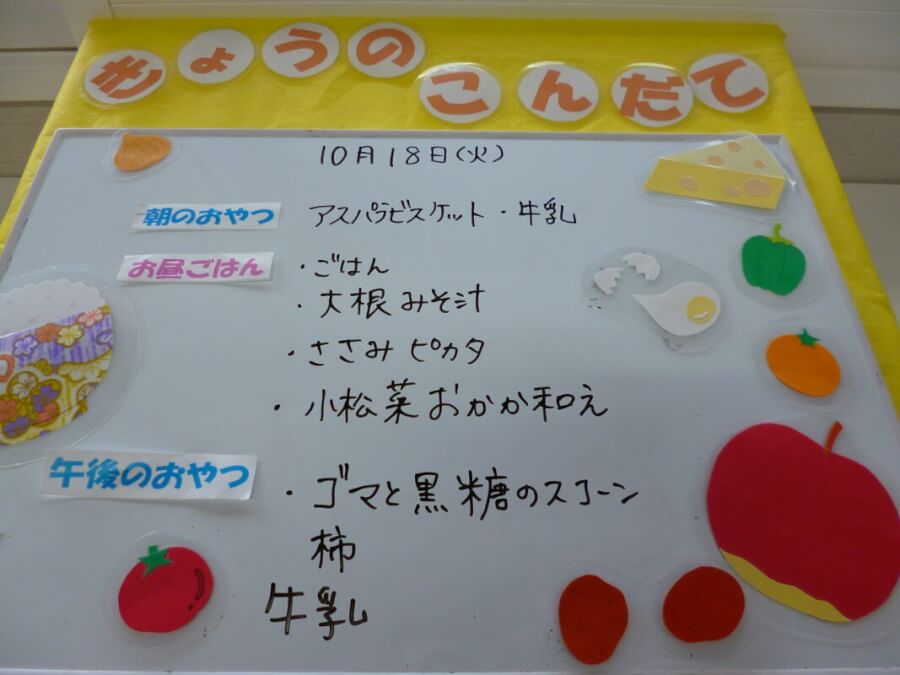 きょうのこんだて
10月18日(火)
朝のおやつ アスパラビスケット・牛乳
お昼ごはん ・ごはん
・大根みそ汁
・ささみピカタ
・小松菜おかか和え
午後のおやつ ・ゴマと黒糖のスコーン
柿
牛乳